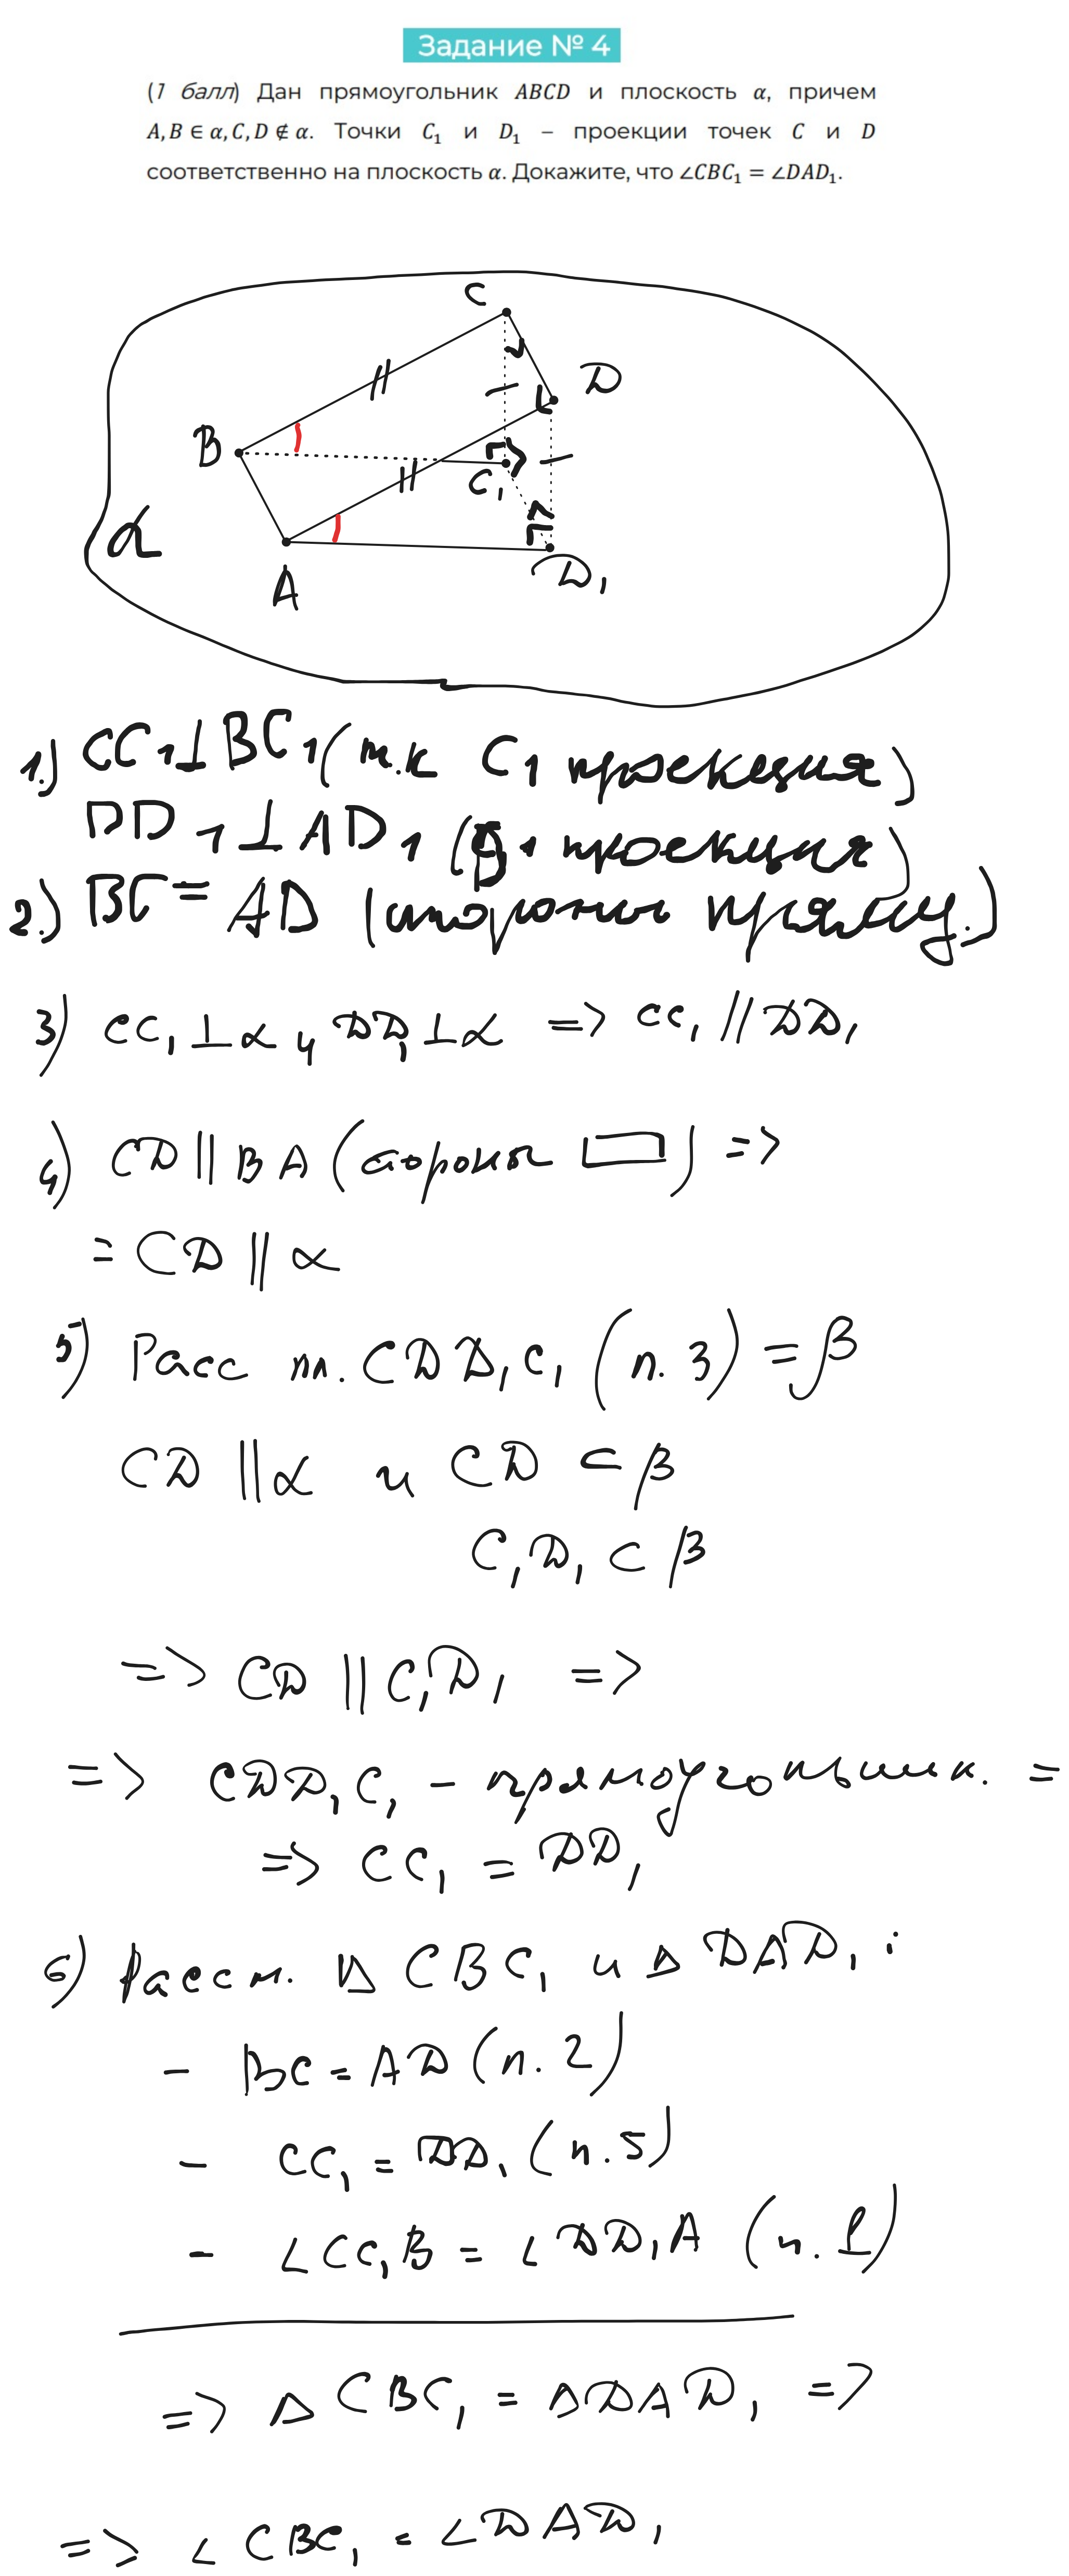 Задание № 4
(1 балл) Дан прямоугольник ABCD и плоскость α, причем
A, B ∈ α, C, D ∉ α. Точки C₁ и D₁ – проекции точек C и D
соответственно на плоскость α. Докажите, что ∠CBC₁ = ∠DAD₁.
C
D
B
C₁
α
A
D₁
1.) CC₁⊥BC₁ (т.к C₁ проекция)
DD₁⊥AD₁ (D₁ проекция)
2.) BC = AD (стороны прямоуг.)
3) CC₁⊥α и DD₁⊥α => CC₁ // DD₁
4) CD || BA (стороны ▭) =>
= CD || α
5) Расс пл. CDD₁C₁ (п. 3) = β
CD || α и CD ⊂ β
C₁D₁ ⊂ β
=> CD || C₁D₁ =>
=> CDD₁C₁ - прямоугольник. =
=> CC₁ = DD₁
6) Рассм. Δ CBC₁ и Δ DAD₁:
- BC = AD (п. 2)
- CC₁ = DD₁ (п. 5)
- ∠CC₁B = ∠DD₁A (п. 1)
=> Δ CBC₁ = ΔDAD₁ =>
=> ∠CBC₁ = ∠DAD₁